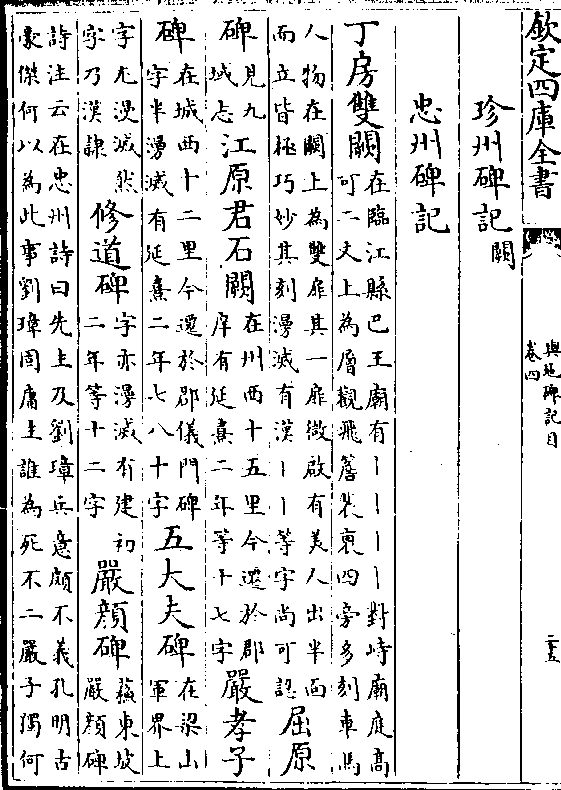 欽定四庫全書
輿地碑記目
卷四
二五
珍州碑記 闕
忠州碑記
丁房雙闕 在臨江縣巴王廟有丨丨丨丨對峙廟庭高
可二丈上為層觀飛簷四旁多刻車馬
人物在闕上為雙扉其一扉微啟有美人出半面
而立皆極巧妙其刻漫滅有漢丨丨等字尚可認 屈原
碑 見九
域志 江原君石闕 在州西十五里今遷於郡
庠有延熹二年等十七字 嚴孝子
碑 在城西十二里今遷於郡儀門碑
字半漫滅有延熹二年七八十字 五大夫碑 在梁山
軍界上
字尤漫滅然
字乃漢隸 修道碑 字亦漫滅有建初
二年等十二字 嚴顔碑 蘇東坡
嚴顔碑
詩注云在忠州詩曰先主及劉璋兵意頗不義孔明古
豪傑何以為此事劉璋固庸主誰為死不二嚴子獨何